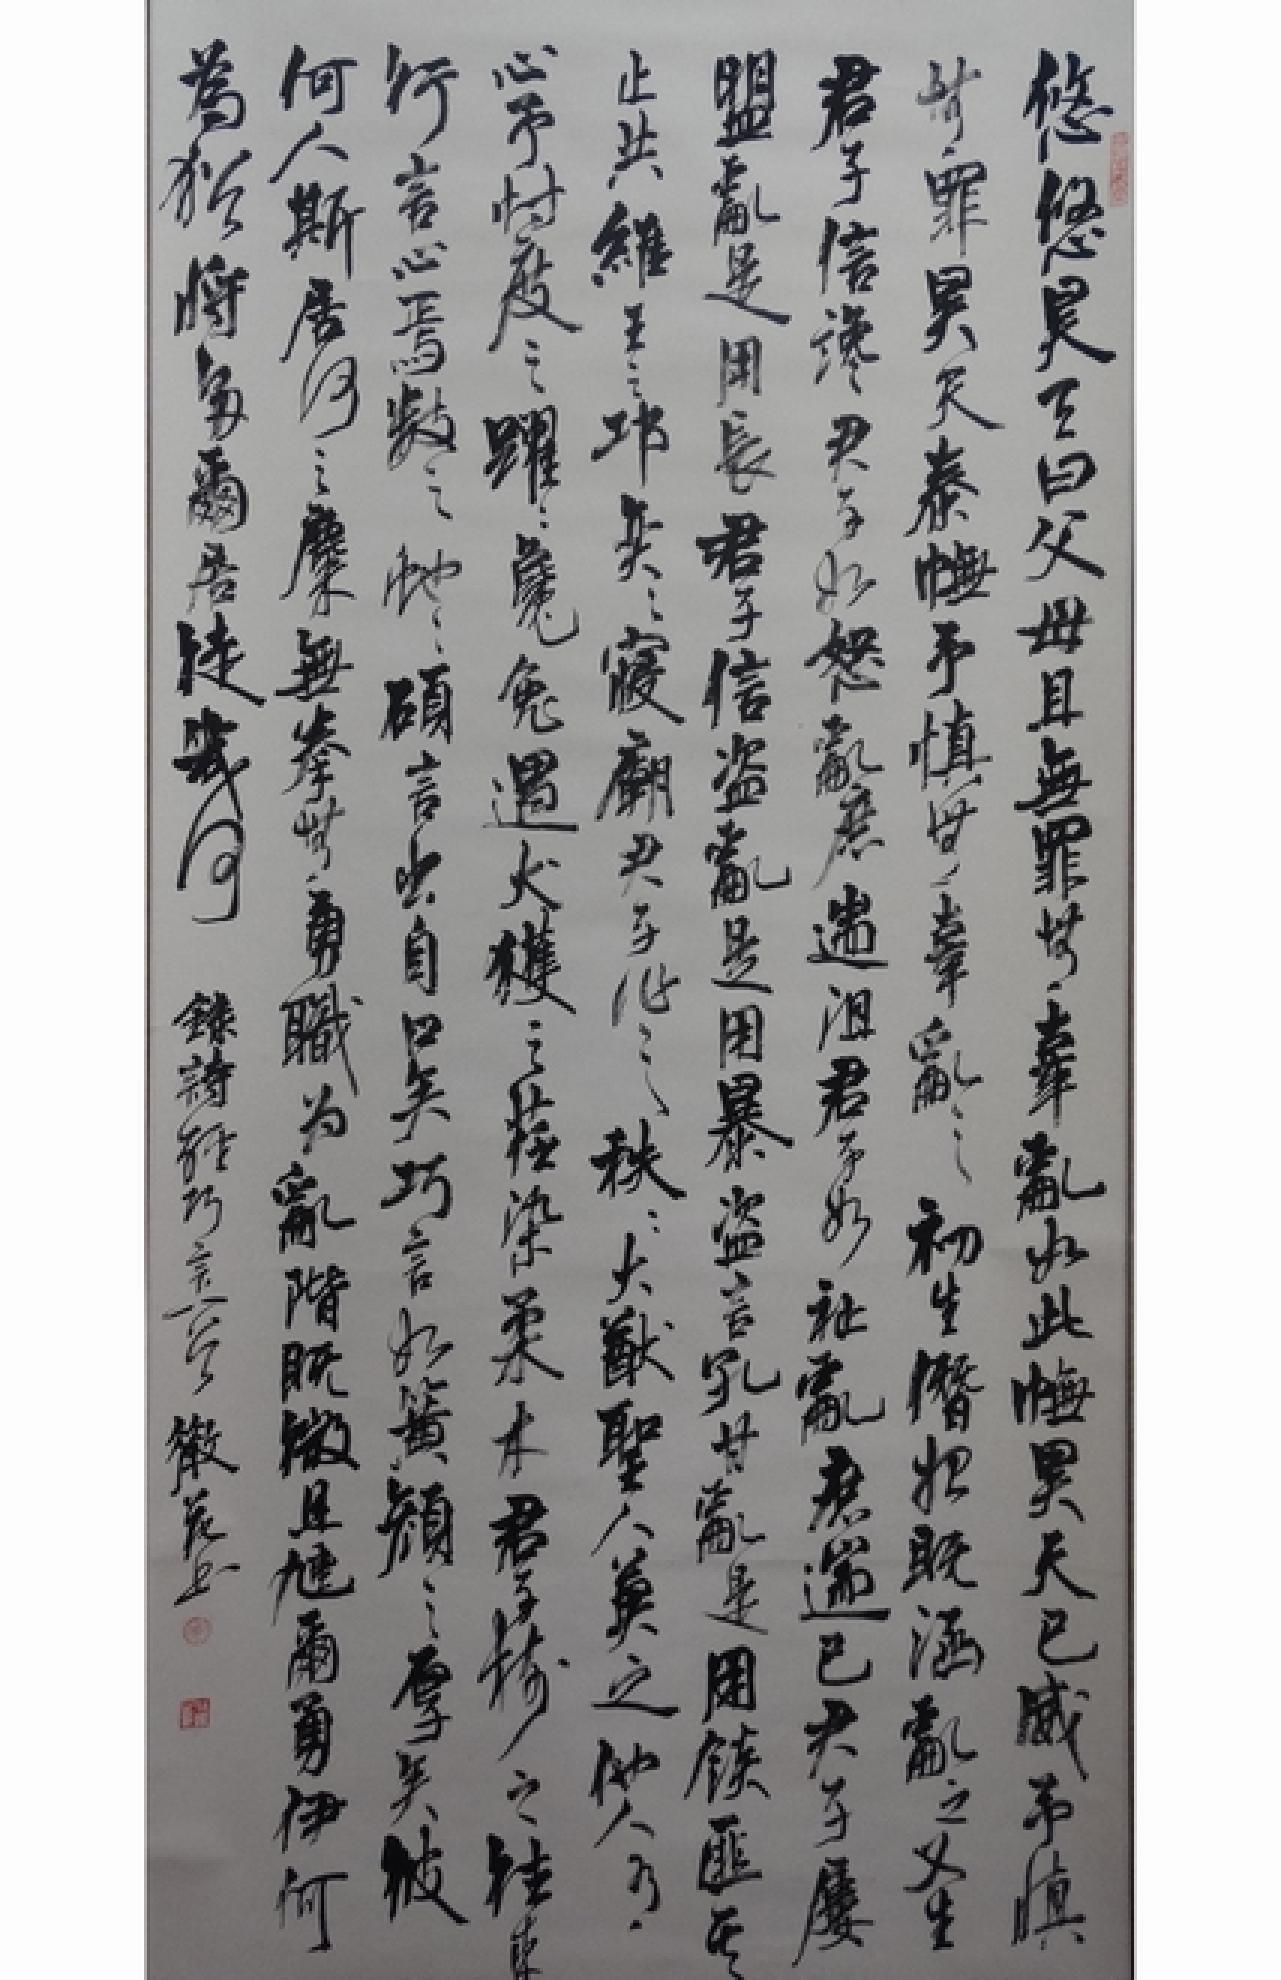 悠悠昊天曰父母且無罪無辜亂如此憮昊天已威予慎
無罪昊天泰憮予慎無辜亂之初生僭始既涵亂之又生
君子信讒君子如怒亂庶遄沮君子如祉亂庶遄已君子屢
盟亂是用長君子信盜亂是用暴盜言孔甘亂是用餤匪其
止共維王之邛奕々寢廟君子作之秩々大猷聖人莫之他人有
心予忖度之躍々毚兔遇犬獲之荏染柔木君子樹之往來
行言心焉數之蛇々碩言出自口矣巧言如簧顏之厚矣彼
何人斯居河之麋無拳無勇職為亂階既微且尰爾勇伊何
為猶將多爾居徒幾何
錄詩經巧言